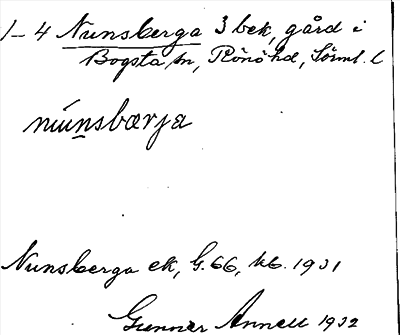 1-4 Nunsberga 3 bek, gård i
Bogsta sn, Rönö hd, Sörml. l
núnsbærja
Nunsberga ek, G. 66, kb. 1931
Gunnar Annell 1932